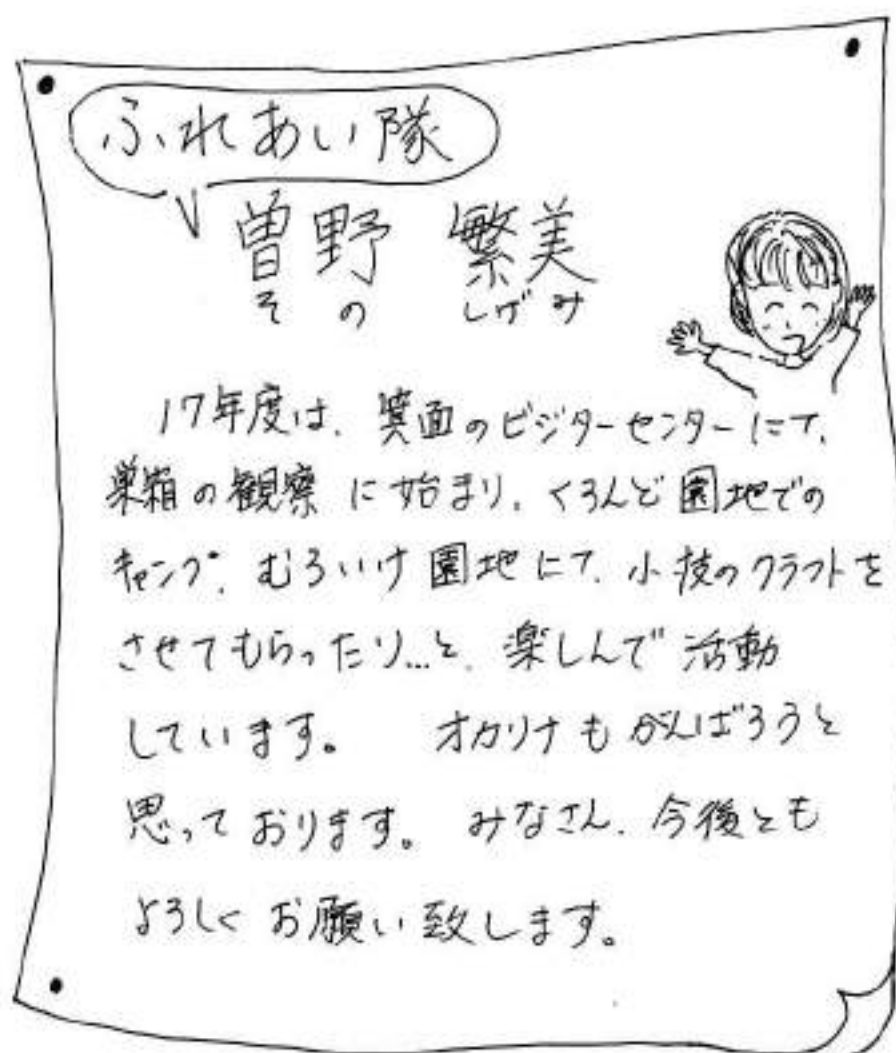 ふれあい隊
曽野 繁美
その しげみ
17年度は、箕面のビジターセンターにて、
巣箱の観察に始まり、くろんど園地での
キャンプ、むろいけ園地にて、小枝のクラフトを
させてもらったり...と、楽しんで活動
しています。 オカリナもがんばろうと
思っております。 みなさん、今後とも
よろしくお願い致します。